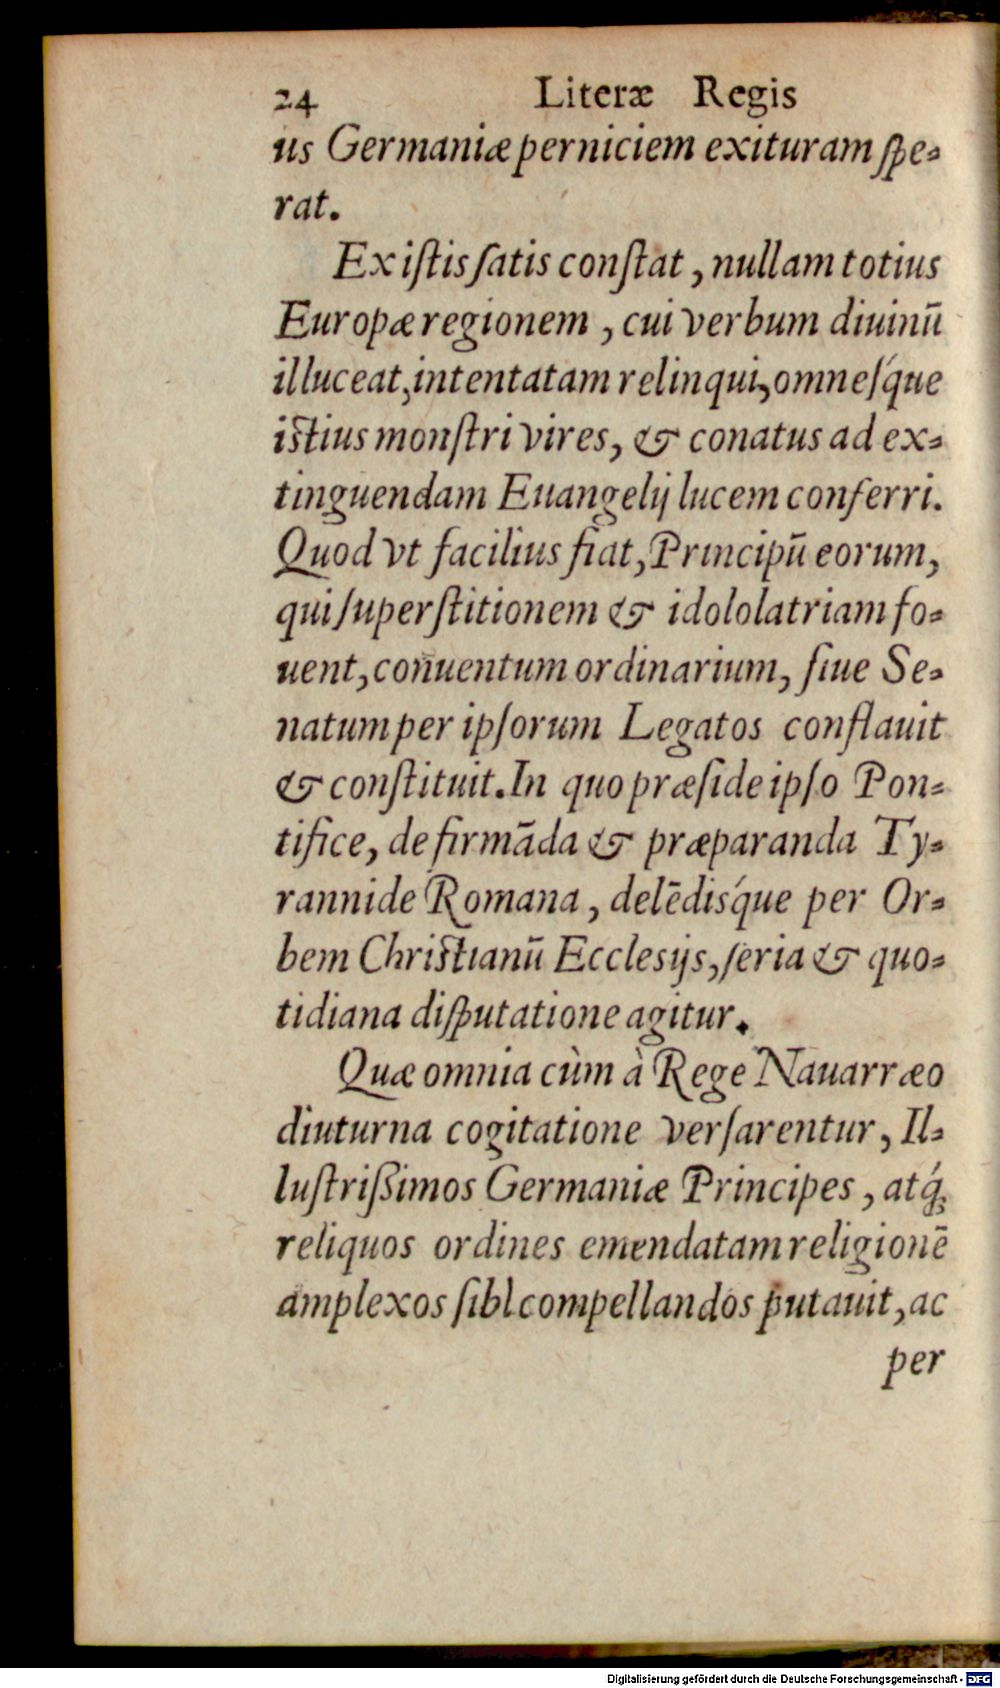 24 Literæ Regis
us Germaniæ perniciem exituram ſpe-
rat.
Ex iſtis ſatis conſtat, nullam totius
Europæ regionem, cui verbum diuinū
illuceat, intentatam relinqui, omneſq́ue
iſtius monſtri vires, & conatus ad ex-
tinguendam Euangelij lucem conferri.
Quod vt facilius fiat, Principū eorum,
qui ſuperſtitionem & idololatriam fo-
uent, conuentum ordinarium, ſiue Se-
natum per ipſorum Legatos conflauit
& conſtituit. In quo præſide ipſo Pon-
tifice, de firmāda & præparanda Ty-
rannide Romana, delēdisq́ue per Or-
bem Chriſtianū Eccleſijs, ſeria & quo-
tidiana diſputatione agitur.
Quæ omnia cùm à Rege Nauarræo
diuturna cogitatione verſarentur, Il-
luſtrißimos Germaniæ Principes, atq́;
reliquos ordines emendatam religionē
amplexos ſibl compellandos putauit, ac
per
Digitalisierung gefördert durch die Deutsche Forschungsgemeinschaft - DFG